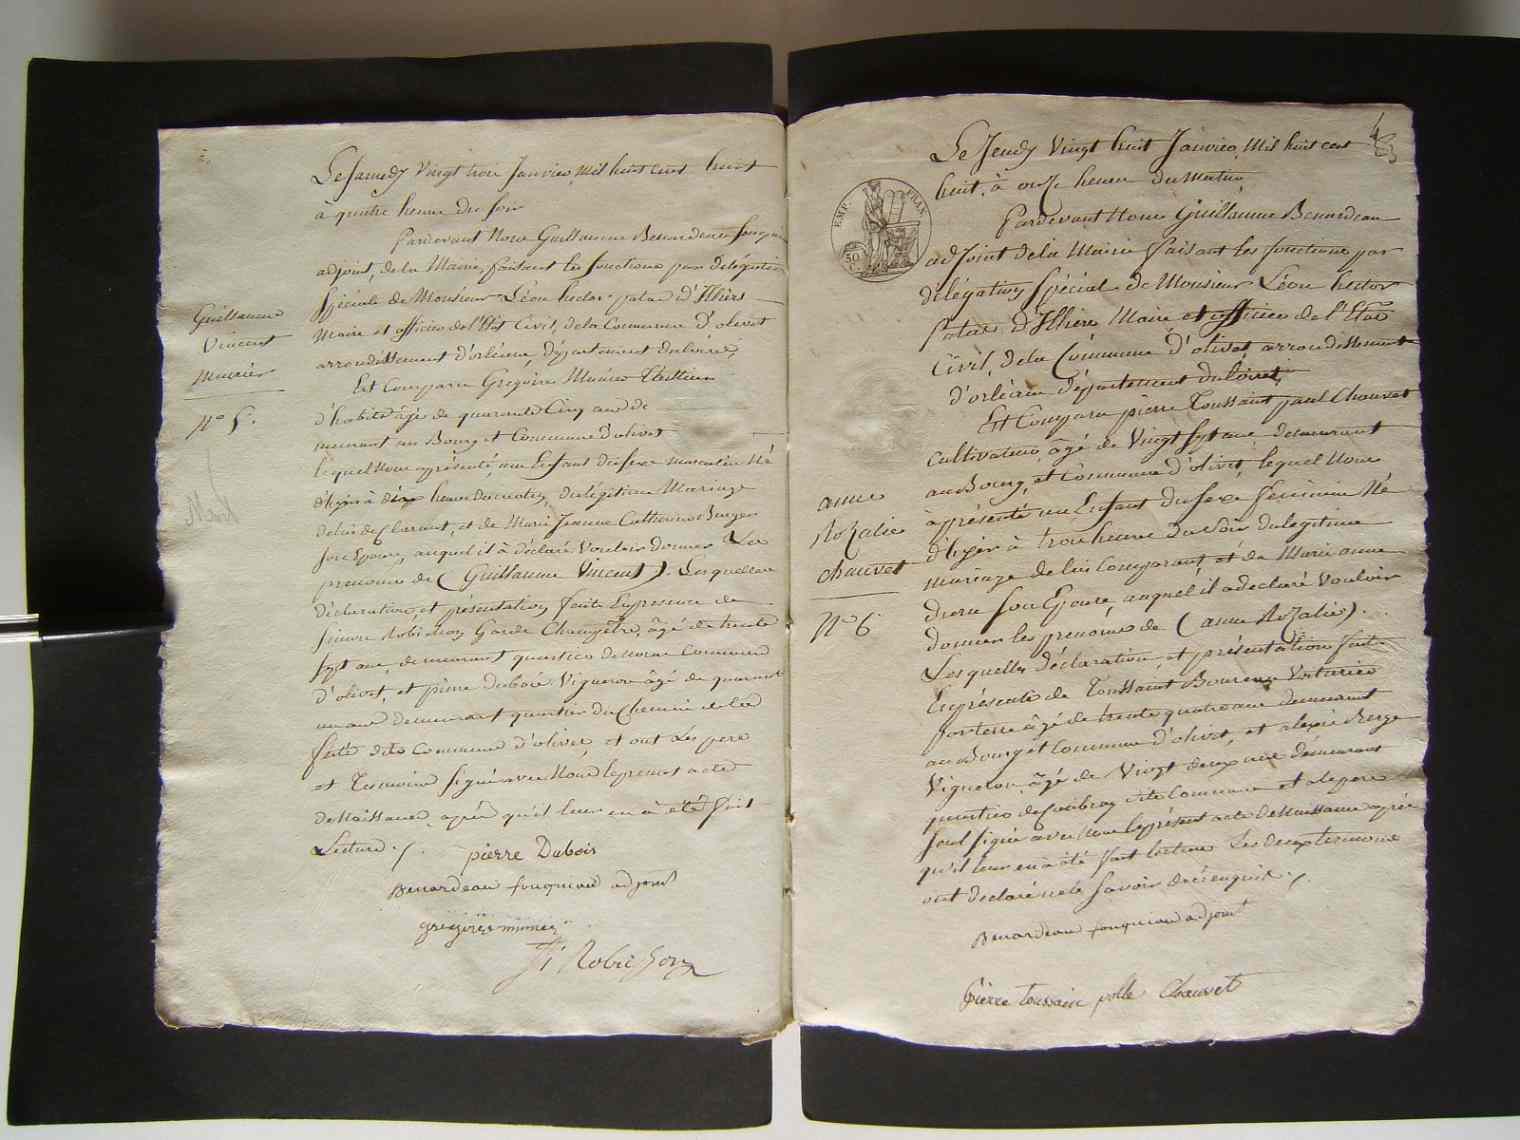 Le Samedy Vingt trois Janvier, mil huit cent huit
à quatre heure du soir
Pardevant Nous Guillaume Benardeau fouqueau
adjoint, de la Mairie, faisant les fonctions par délégation
spéciale de Monsieur Léon hector patas d'Illiers
Maire et officier de l'Etat Civil, de la Commune d'olivet
arrondissement d'orléans, département du loiret,
Est Comparu Grégoire Munier Tailleur
d'habits âgé de quarante Cinq ans de
meurant au Bourg et Commune d'olivet
lequel Nous a présenté, un Enfant du sexe masculin Né
d'hyer à dix heure du matin, du légitime Mariage
de lui déclarant, et de Marie Jeanne Catherine Burger
son Epouse, auquel il à déclaré Vouloir donner Les
prenoms de (Guillaume Vincent). Lesquelles
déclaration, et présentation faite En présence de
Robichon Garde Champêtre, âgé de trente
sept ans, demeurant quartier de Commune
d'olivet, et pierre dubois Vigneron âgé de quarante
un ans demeurant quartier du Chemin de la
ferté dite commune d'olivet et ont Les pere
et Temoins signé avec Nous le present acte
de Naissance, après qu'il leur en à été fait
Lecture ./.
pierre Dubois
Benardeau fouqueau adjoint
grégoire munier
Robichon
Guillaume
Vincent
Munier
N° 5.
4
Le Jeudy Vingt huit Janvier, Mil huit cent
huit, à onze heure du Matin
EMP. FRAN.
50
Pardevant Nous Guillaume Benardeau
adjoint de la Mairie faisant les fonctions par
délégation spécial de Monsieur Léon hector
patas d'Illiers Maire et officier de l'Etat
Civil, de la Commune d'olivet, arrondissement
d'orléans département du loiret,
Est Comparu pierre Toussaint paul Chauvet
Cultivateur, âgé de Vingt sept ans, demeurant
au Bourg, et Commune d'olivet, lequel Nous
à présenté un Enfant du sexe féminin Né
d'hyer à trois heure du soir du legitime
mariage de lui Comparant et de Marie anne
son Epouse, auquel il a declaré Vouloir
donner les prenoms de (anne Rozalie).
Lesquelles déclaration, et présentation faite
En présence de Toussaint Voiturier
par terre âgé de trente quatre ans demeurant
au Bourg et Commune d'olivet, et alexis
Vigneron, âgé de Vingt deux ans demeurant
quartier de dite Commune et a le pere
seul signé avec nous le présent acte de Naissance après
qu'il leur en à été fait lecture Les deux temoins
ont declaré ne le savoir de ce enquis ./.
Benardeau fouqueau adjoint
pierre toussaint polle Chauvet
anne
Rozalie
chauvet
N° 6